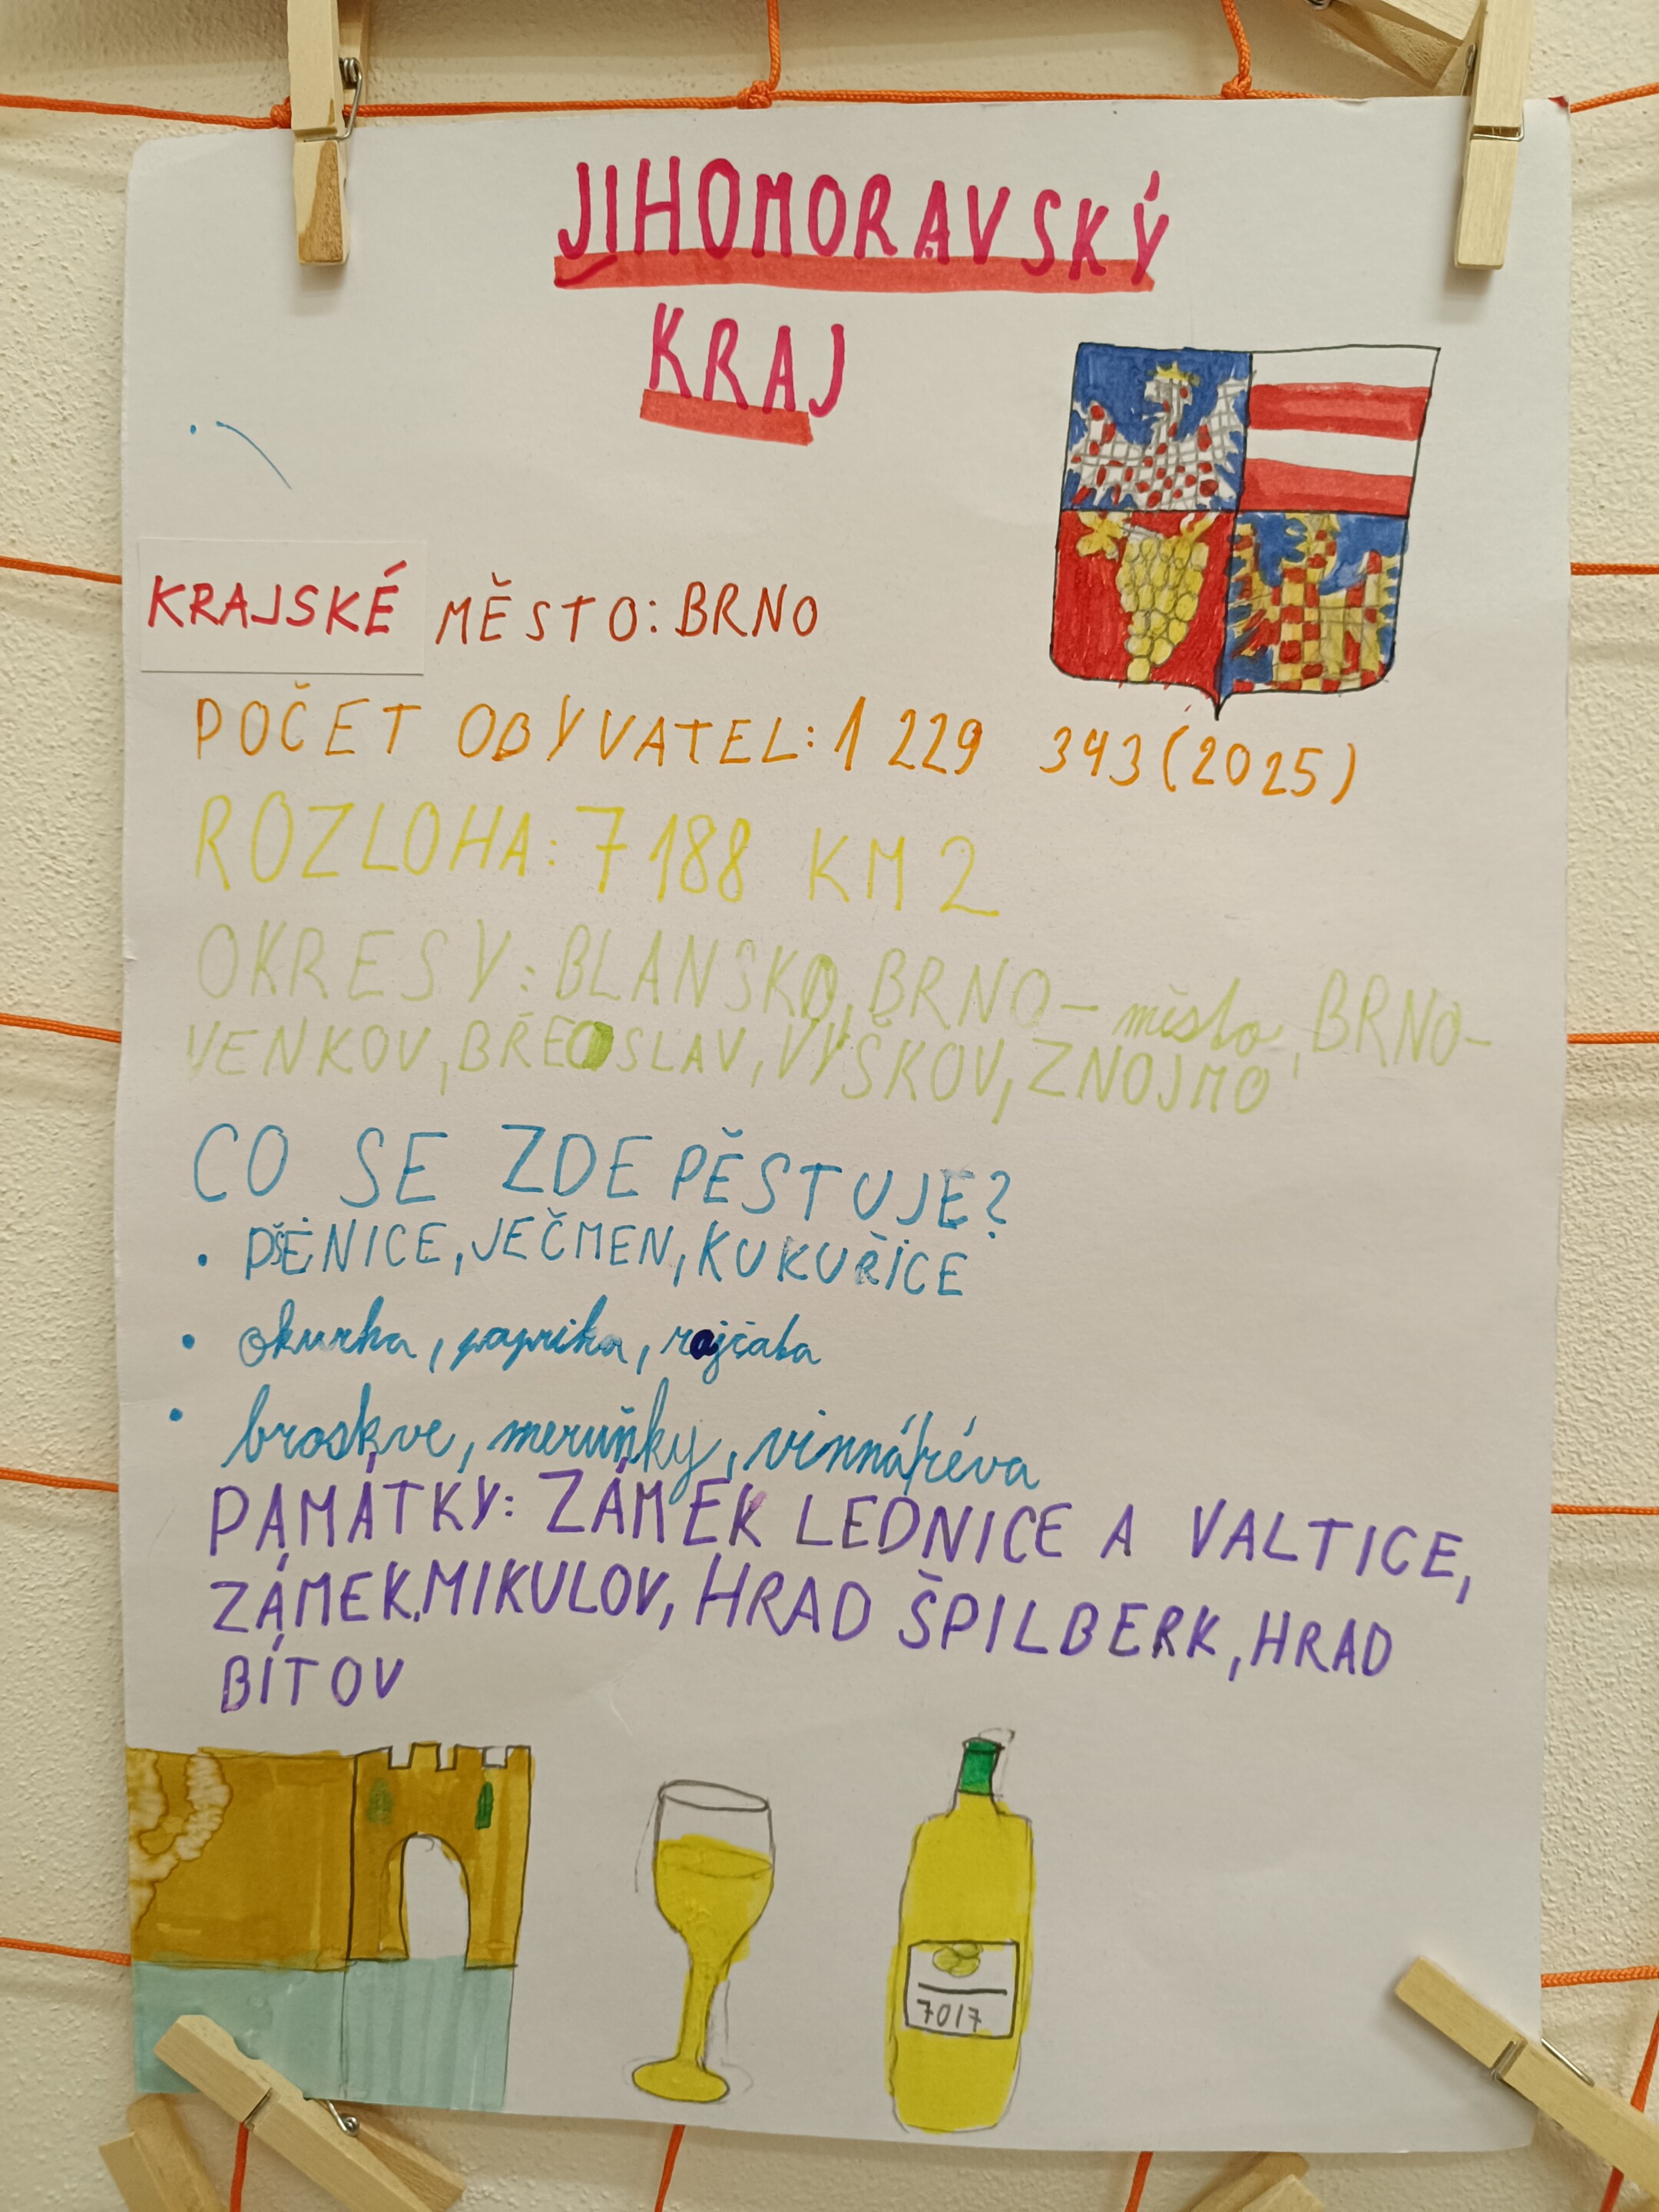 JIHOMORAVSKÝ
KRAJ
KRAJSKÉ MĚSTO: BRNO
POČET OBYVATEL: 1 229 343 (2025)
ROZLOHA: 7 188 KM 2
OKRESY: BLANSKO, BRNO – město, BRNO-
VENKOV, BŘEOSLAV, VYŠKOV, ZNOJMO
CO SE ZDE PĚSTUJE?
• PŠENICE, JEČMEN, KUKUŘICE
• okurka, paprika, rajčata
• broskve, meruňky, vinná réva
PAMÁTKY: ZÁMEK LEDNICE A VALTICE,
ZÁMEK MIKULOV, HRAD ŠPILBERK, HRAD
BÍTOV
7017